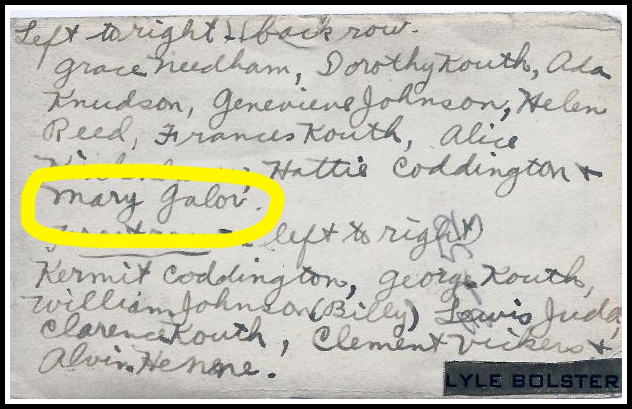 Left to right - back row.
Grace Needham, Dorothy Kouth, Ada
Knudson, Genevieve Johnson, Helen
Reed, Frances Kouth, Alice
Hattie Coddington &
Mary Galov.
Front row - (left to right)
Kermit Coddington, George Kouth,
William Johnson (Billy) Lewis Judd,
Clarence Kouth, Clement Vickers &
Alvin Henne.
LYLE BOLSTER